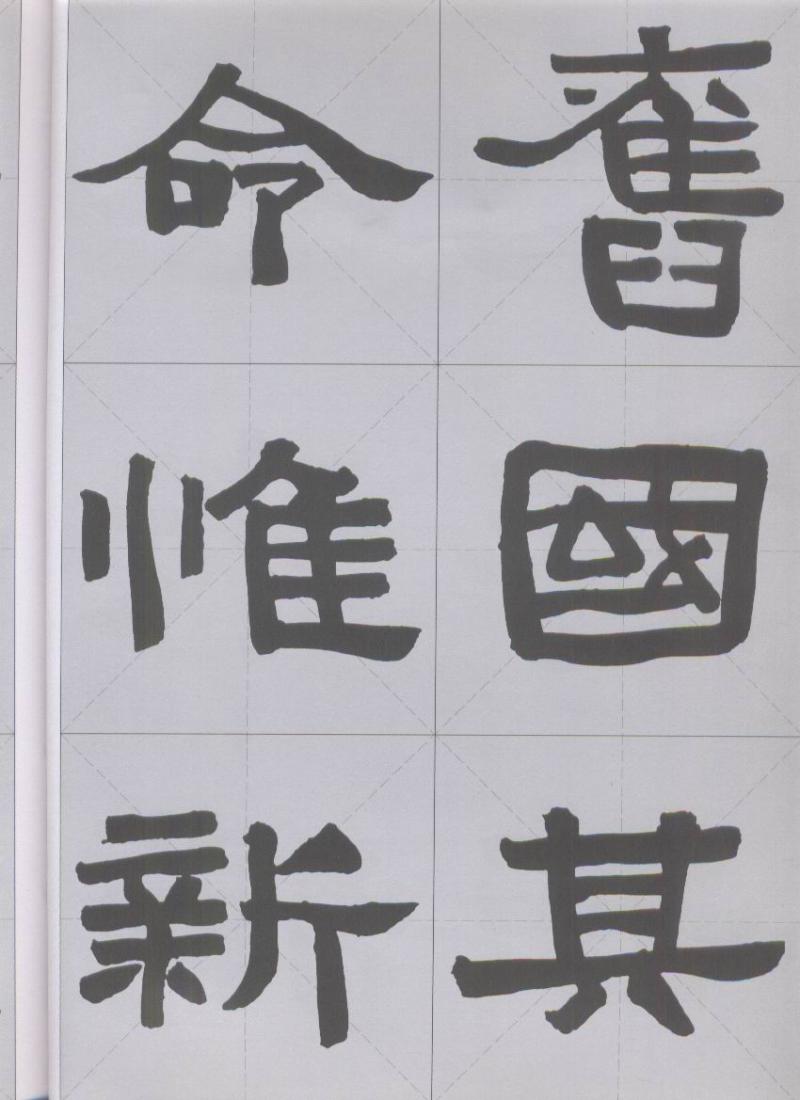 舊國其
命惟新